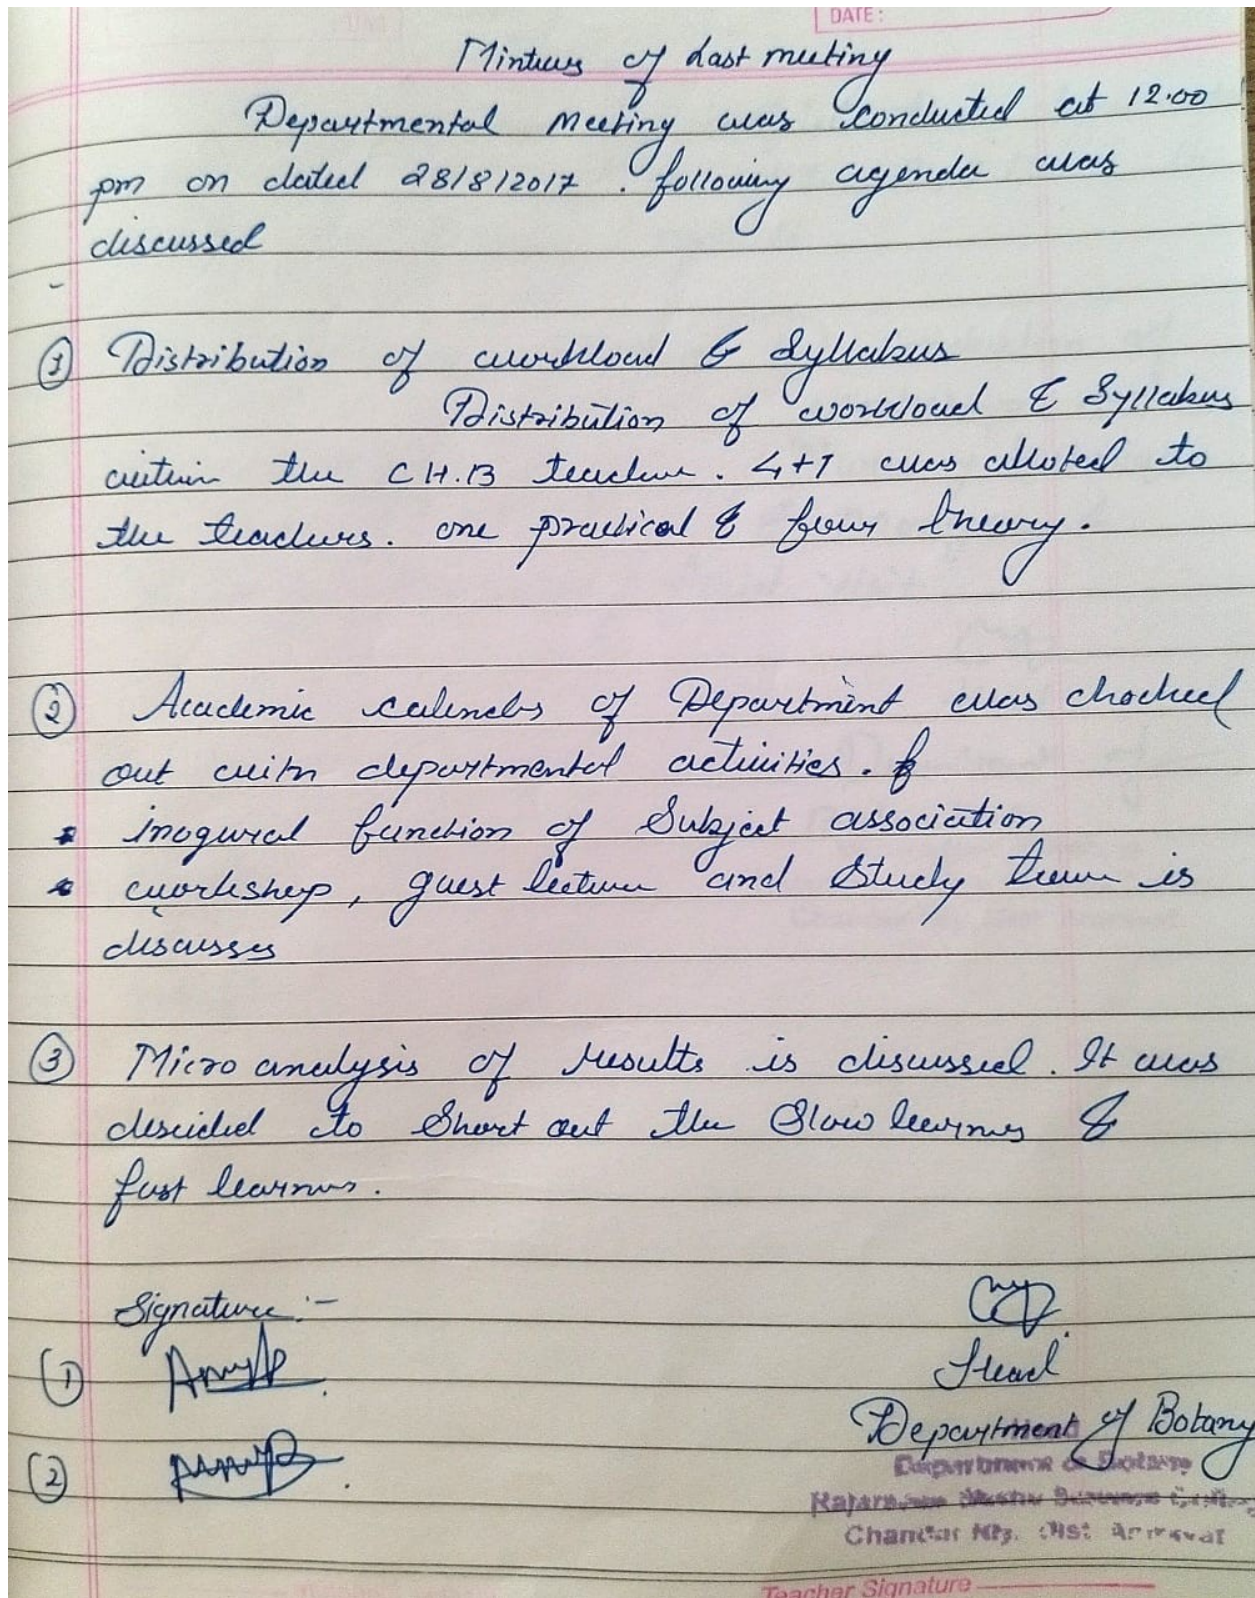 DATE :
Mintues of Last meeting
Departmental Meeting was conducted at 12.00
pm on dated 28/8/2017 . following agenda was
discussed
① Distribution of workload & Syllabus
Distribution of workload & Syllabus
within the C.H.B teacher . 4+1 was alloted to
the teachers. one practical & four theory.
② Academic of Department was chocked
out with departmental activities .
inogural function of Subject association
workshop , guest lecture and Study is
discusses
③ Micro analysis of results is discussed . It was
descided to Short out the Slow learners &
fast learners .
Signature :-
(1)
Head
Department of Botany
(2)
Department of Botany
Chandur Rly. Dist Amravati
Teacher Signature